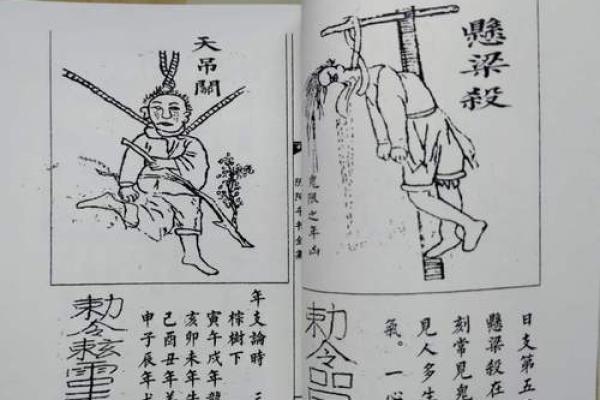 懸梁殺
限之年凶
日支第五
懸梁殺在
刻常見鬼
見人多生
氣。一心
勅令
天吊關
年支論時
棕樹下
寅午戌年龍
亥卯未年
己酉丑年
申子辰年
勅令